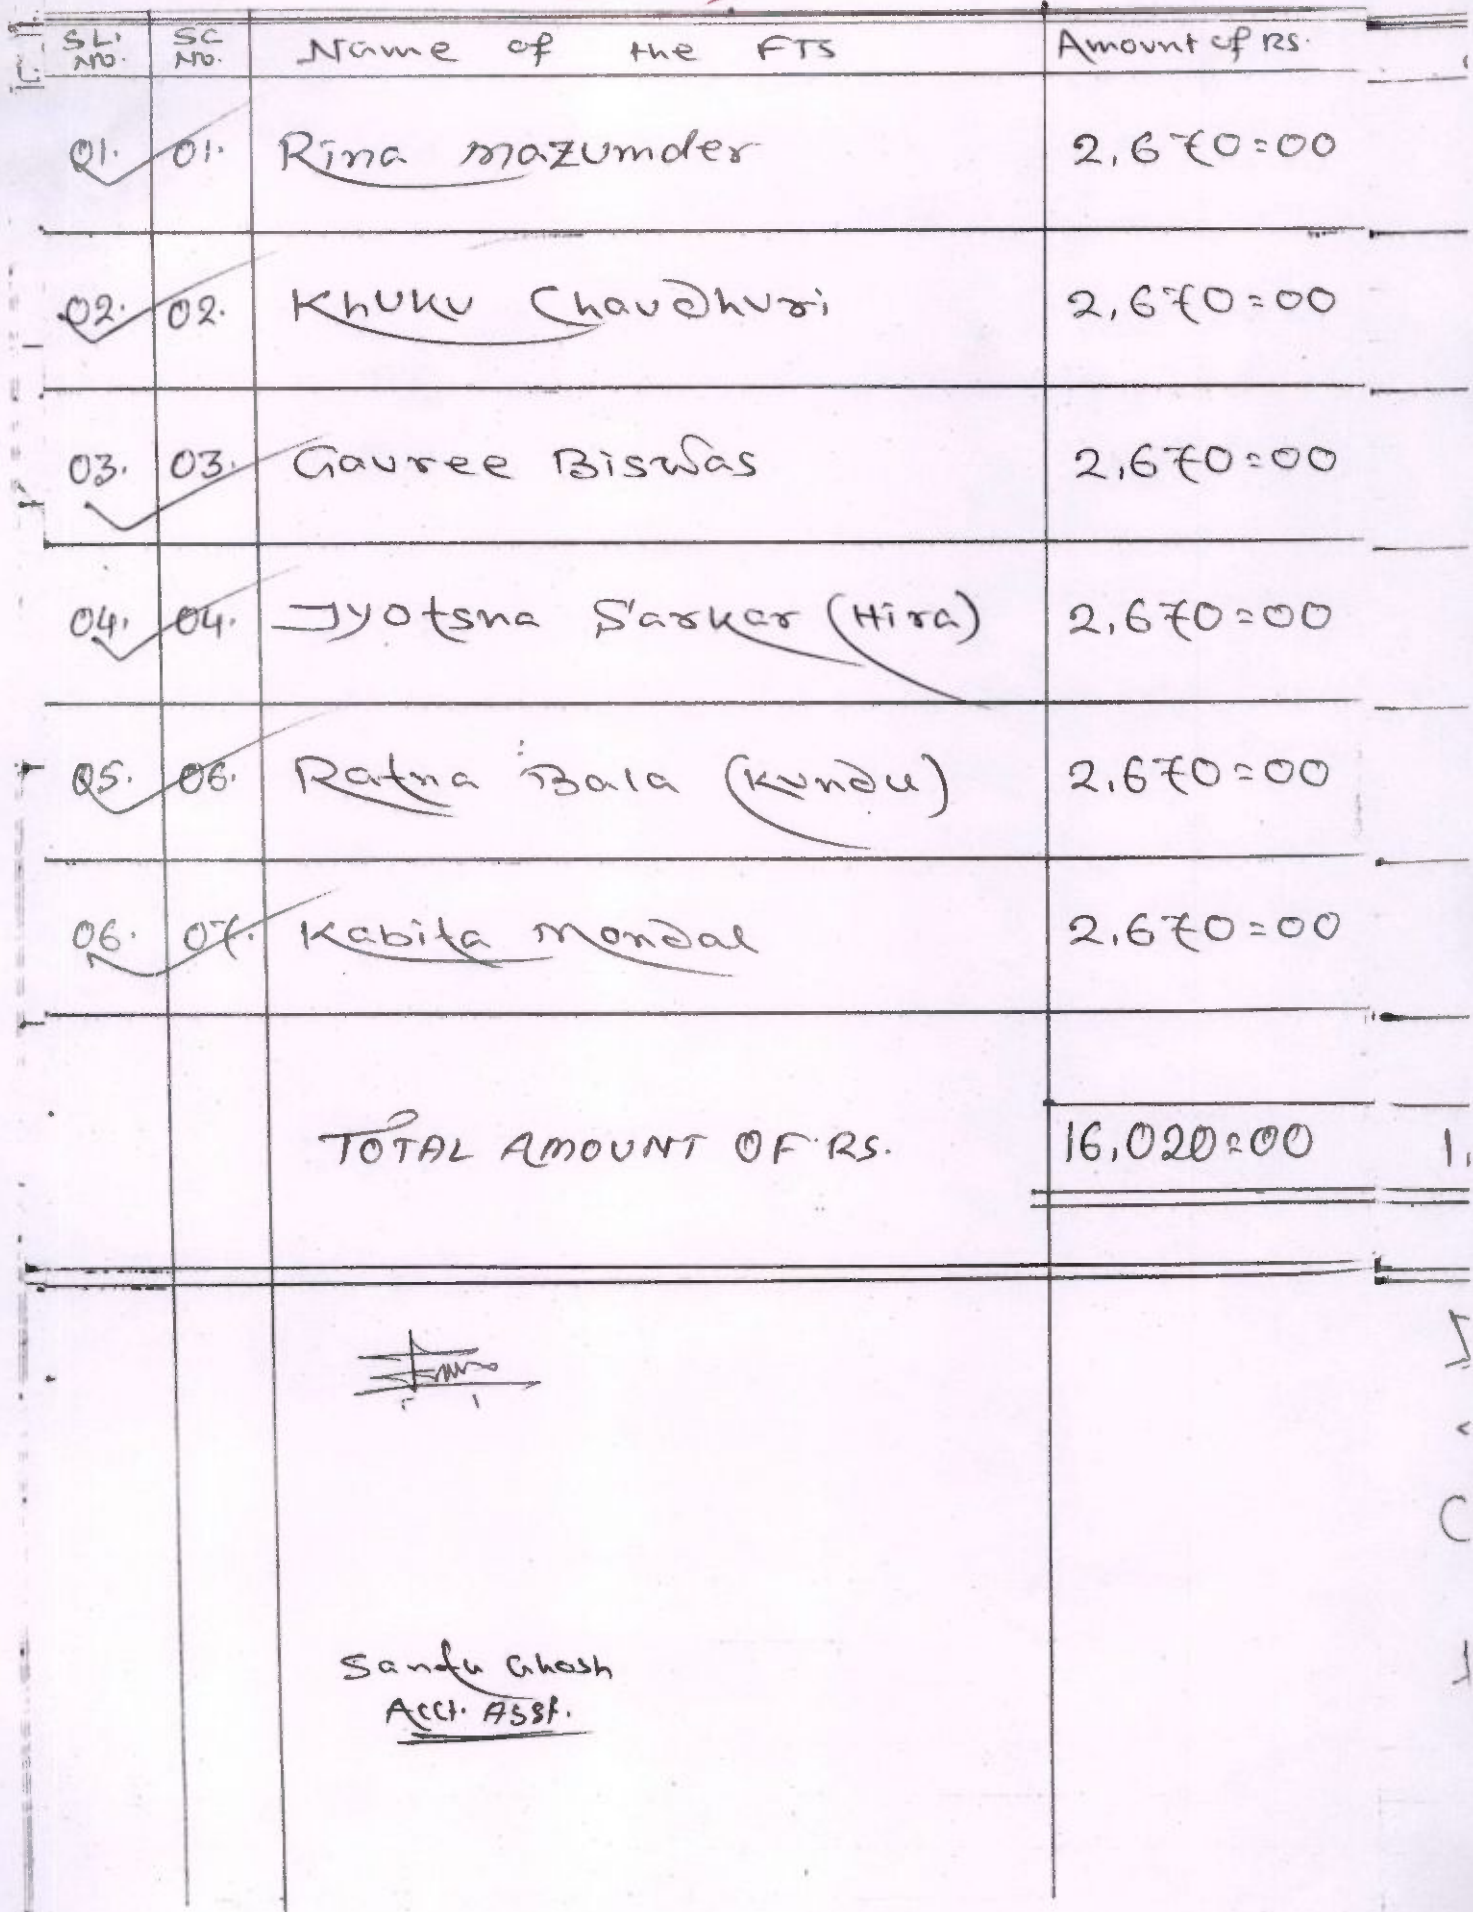 SL. NO. SC NO. Name of the FTS Amount of RS.
01. 01. Rina Mazumder 2,670=00
02. 02. Khuku Chaudhuri 2,670=00
03. 03. Gauree Biswas 2,670=00
04. 04. Jyotsna Sarkar (Hira) 2,670=00
05. 06. Ratna Bala (Kundu) 2,670=00
06. 07. Kabita Mondal 2,670=00
TOTAL AMOUNT OF RS. 16,020=00 1,
Ghosh
Acct. Asst.